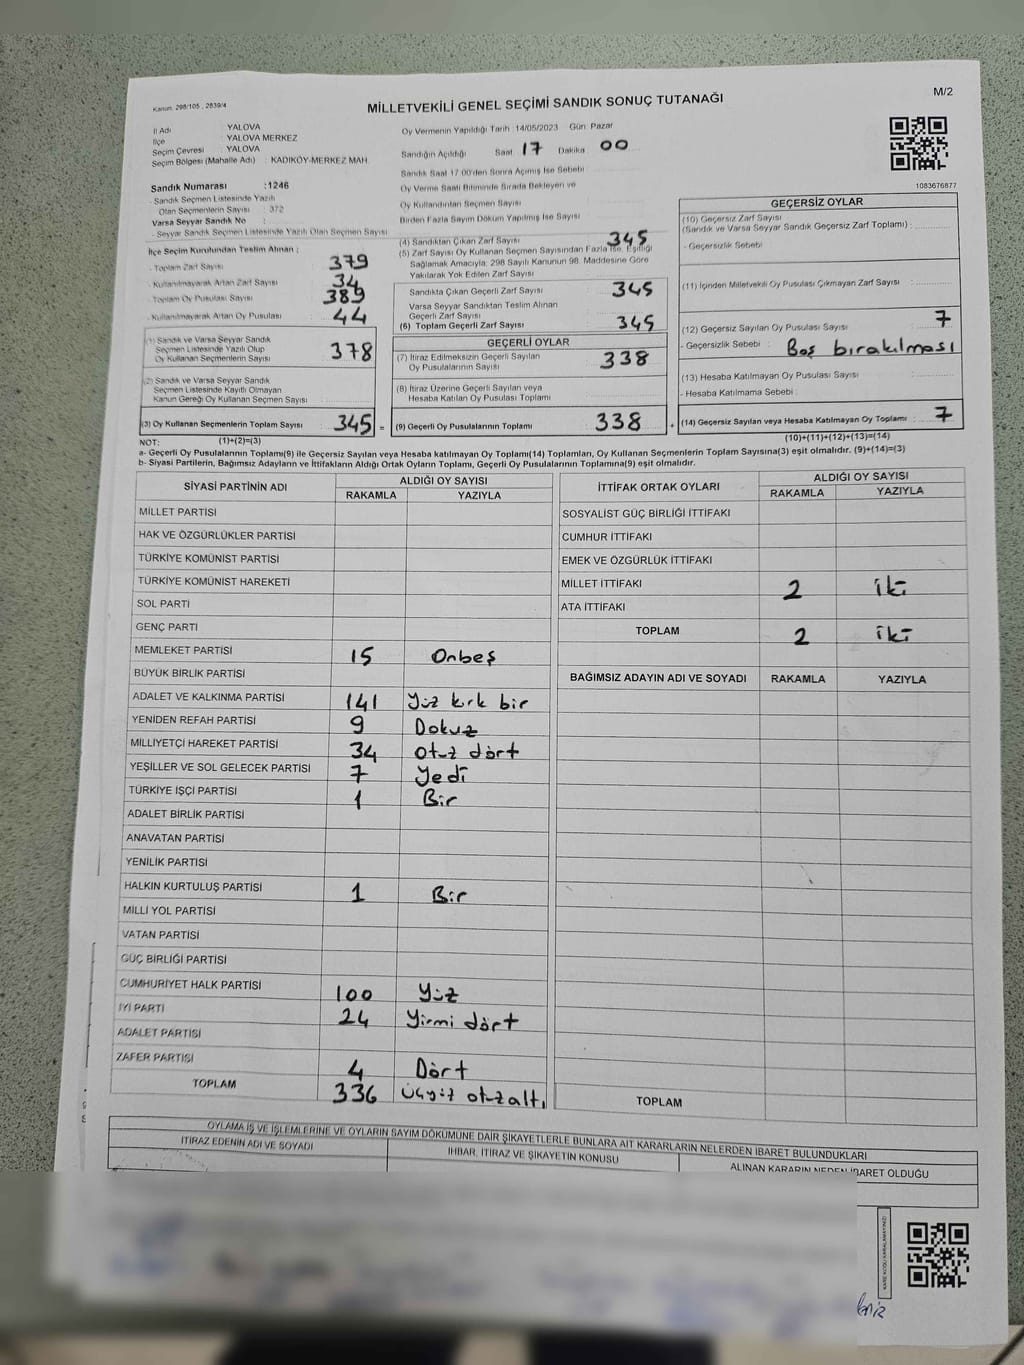 Kanun: 298/105 , 2839/4
MİLLETVEKİLİ GENEL SEÇİMİ SANDIK SONUÇ TUTANAĞI
M/2
İl Adı YALOVA
İlçe YALOVA MERKEZ
Seçim Çevresi YALOVA
Seçim Bölgesi (Mahalle Adı) : KADIKÖY-MERKEZ MAH.
Sandık Numarası :1246
- Sandık Seçmen Listesinde Yazılı
Olan Seçmenlerin Sayısı : 372
Varsa Seyyar Sandık No :
- Seyyar Sandık Seçmen Listesinde Yazılı Olan Seçmen Sayısı
Oy Vermenin Yapıldığı Tarih :14/05/2023 Gün: Pazar
Sandığın Açıldığı Saat 17 Dakika 00
Sandık Saat 17:00'den Sonra Açımış İse Sebebi
Oy Verme Saati Bitiminde Sırada Bekleyen ve
Oy Kullandırılan Seçmen Sayısı
Birden Fazla Sayım Döküm Yapılmış İse Sayısı
1083676877
İlçe Seçim Kurulundan Teslim Alınan ;
- Toplam Zarf Sayısı 379
- Kullanılmayarak Artan Zarf Sayısı 34
- Toplam Oy Pusulası Sayısı 389
- Kullanılmayarak Artan Oy Pusulası 44
(1) Sandık ve Varsa Seyyar Sandık
Seçmen Listesinde Yazılı Olup
Oy Kullanan Seçmenlerin Sayısı 378
(2) Sandık ve Varsa Seyyar Sandık
Seçmen Listesinde Kayıtlı Olmayan
Kanun Gereği Oy Kullanan Seçmen Sayısı :
(3) Oy Kullanan Seçmenlerin Toplam Sayısı 345 =
(4) Sandıktan Çıkan Zarf Sayısı 345
(5) Zarf Sayısı Oy Kullanan Seçmen Sayısından Fazla İse, Eşitliği
Sağlamak Amacıyla; 298 Sayılı Kanunun 98. Maddesine Göre
Yakılarak Yok Edilen Zarf Sayısı
Sandıkta Çıkan Geçerli Zarf Sayısı 345
Varsa Seyyar Sandıktan Teslim Alınan
Geçerli Zarf Sayısı
(6) Toplam Geçerli Zarf Sayısı 345
GEÇERLİ OYLAR
(7) İtiraz Edilmeksizin Geçerli Sayılan
Oy Pusulalarının Sayısı 338
(8) İtiraz Üzerine Geçerli Sayılan veya
Hesaba Katılan Oy Pusulası Toplamı
(9) Geçerli Oy Pusulalarının Toplamı 338 +
GEÇERSİZ OYLAR
(10) Geçersiz Zarf Sayısı
(Sandık ve Varsa Seyyar Sandık Geçersiz Zarf Toplamı) :
- Geçersizlik Sebebi :
(11) İçinden Milletvekili Oy Pusulası Çıkmayan Zarf Sayısı :
(12) Geçersiz Sayılan Oy Pusulası Sayısı : 7
- Geçersizlik Sebebi : Boş bırakılması
(13) Hesaba Katılmayan Oy Pusulası Sayısı :
- Hesaba Katılmama Sebebi :
(14) Geçersiz Sayılan veya Hesaba Katılmayan Oy Toplamı : 7
NOT: (1)+(2)=(3) (10)+(11)+(12)+(13)=(14)
a- Geçerli Oy Pusulalarının Toplamı(9) ile Geçersiz Sayılan veya Hesaba katılmayan Oy Toplamı(14) Toplamları, Oy Kullanan Seçmenlerin Toplam Sayısına(3) eşit olmalıdır. (9)+(14)=(3)
b- Siyasi Partilerin, Bağımsız Adayların ve İttifakların Aldığı Ortak Oyların Toplamı, Geçerli Oy Pusulalarının Toplamına(9) eşit olmalıdır.
SİYASİ PARTİNİN ADI ALDIĞI OY SAYISI
RAKAMLA YAZIYLA
MİLLET PARTİSİ
HAK VE ÖZGÜRLÜKLER PARTİSİ
TÜRKİYE KOMÜNİST PARTİSİ
TÜRKİYE KOMÜNİST HAREKETİ
SOL PARTİ
GENÇ PARTİ
MEMLEKET PARTİSİ 15 Onbeş
BÜYÜK BİRLİK PARTİSİ
ADALET VE KALKINMA PARTİSİ 141 Yüz kırk bir
YENİDEN REFAH PARTİSİ 9 Dokuz
MİLLİYETÇİ HAREKET PARTİSİ 34 otuz dört
YEŞİLLER VE SOL GELECEK PARTİSİ 7 Yedi
TÜRKİYE İŞÇİ PARTİSİ 1 Bir
ADALET BİRLİK PARTİSİ
ANAVATAN PARTİSİ
YENİLİK PARTİSİ
HALKIN KURTULUŞ PARTİSİ 1 Bir
MİLLİ YOL PARTİSİ
VATAN PARTİSİ
GÜÇ BİRLİĞİ PARTİSİ
CUMHURİYET HALK PARTİSİ 100 Yüz
İYİ PARTİ 24 Yirmi dört
ADALET PARTİSİ
ZAFER PARTİSİ 4 Dört
TOPLAM 336 Üçyüz otuzaltı
İTTİFAK ORTAK OYLARI ALDIĞI OY SAYISI
RAKAMLA YAZIYLA
SOSYALİST GÜÇ BİRLİĞİ İTTİFAKI
CUMHUR İTTİFAKI
EMEK VE ÖZGÜRLÜK İTTİFAKI
MİLLET İTTİFAKI 2 iki
ATA İTTİFAKI
TOPLAM 2 iki
BAĞIMSIZ ADAYIN ADI VE SOYADI RAKAMLA YAZIYLA
TOPLAM
OYLAMA İŞ VE İŞLEMLERİNE VE OYLARIN SAYIM DÖKÜMÜNE DAİR ŞİKAYETLERLE BUNLARA AİT KARARLARIN NELERDEN İBARET BULUNDUKLARI
İTİRAZ EDENİN ADI VE SOYADI İHBAR, İTİRAZ VE ŞİKAYETİN KONUSU ALINAN KARARIN NEDEN İBARET OLDUĞU
KARE KODU KARALAMAYINIZ!